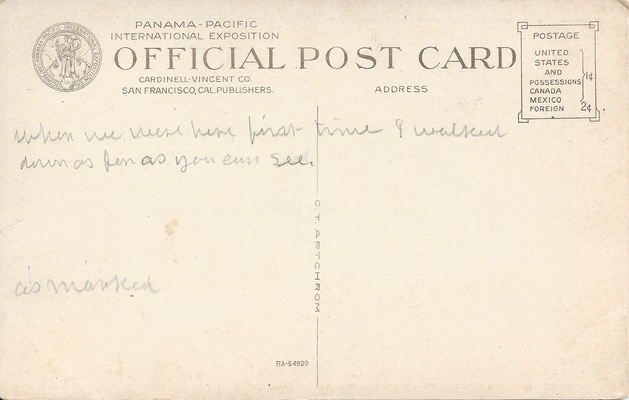 PANAMA-PACIFIC
INTERNATIONAL EXPOSITION
OFFICIAL POST CARD
CARDINELL-VINCENT CO.
SAN FRANCISCO, CAL. PUBLISHERS.
ADDRESS
POSTAGE
UNITED
STATES
AND
POSSESSIONS
CANADA
MEXICO
1¢
FOREIGN 2¢
when we were here first time I walked
down as far as you can see.
as marked
C.T. ARTCHROM
RA-64820